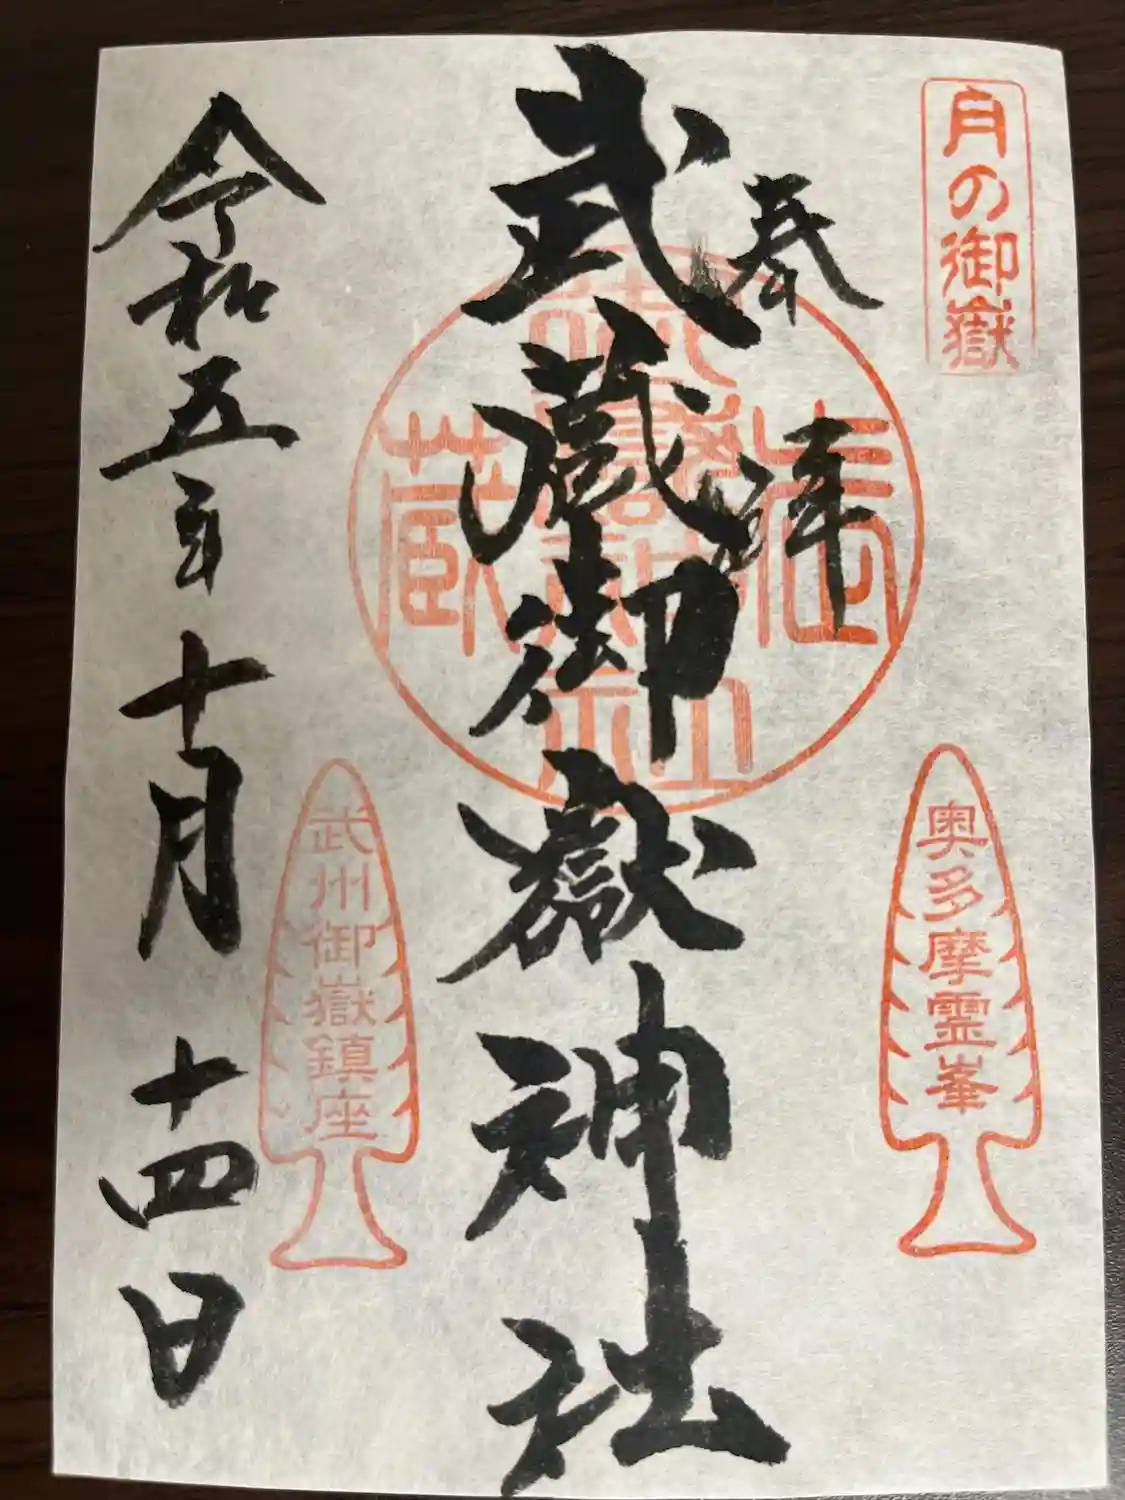 月の御嶽
奉拝
武蔵御嶽神社
奥多摩霊峯
武州御嶽鎮座
令和五年十月十四日